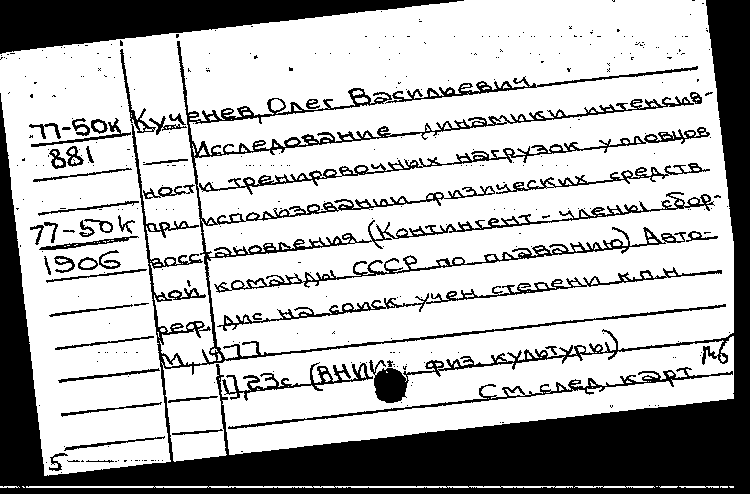 77-50к Кученев, Олег Васильевич.
881 Исследование динамики интенсив-
ности тренировочных нагрузок у пловцов
77-50к при использовании физических средств
1906 восстановления. (Контингент - члены сбор-
ной команды СССР по плаванию) Авто-
реф. дис. на соиск. учен. степени к.п.н
М., 1977.
23с. (ВНИИ физ. культуры).
См. след. карт
5